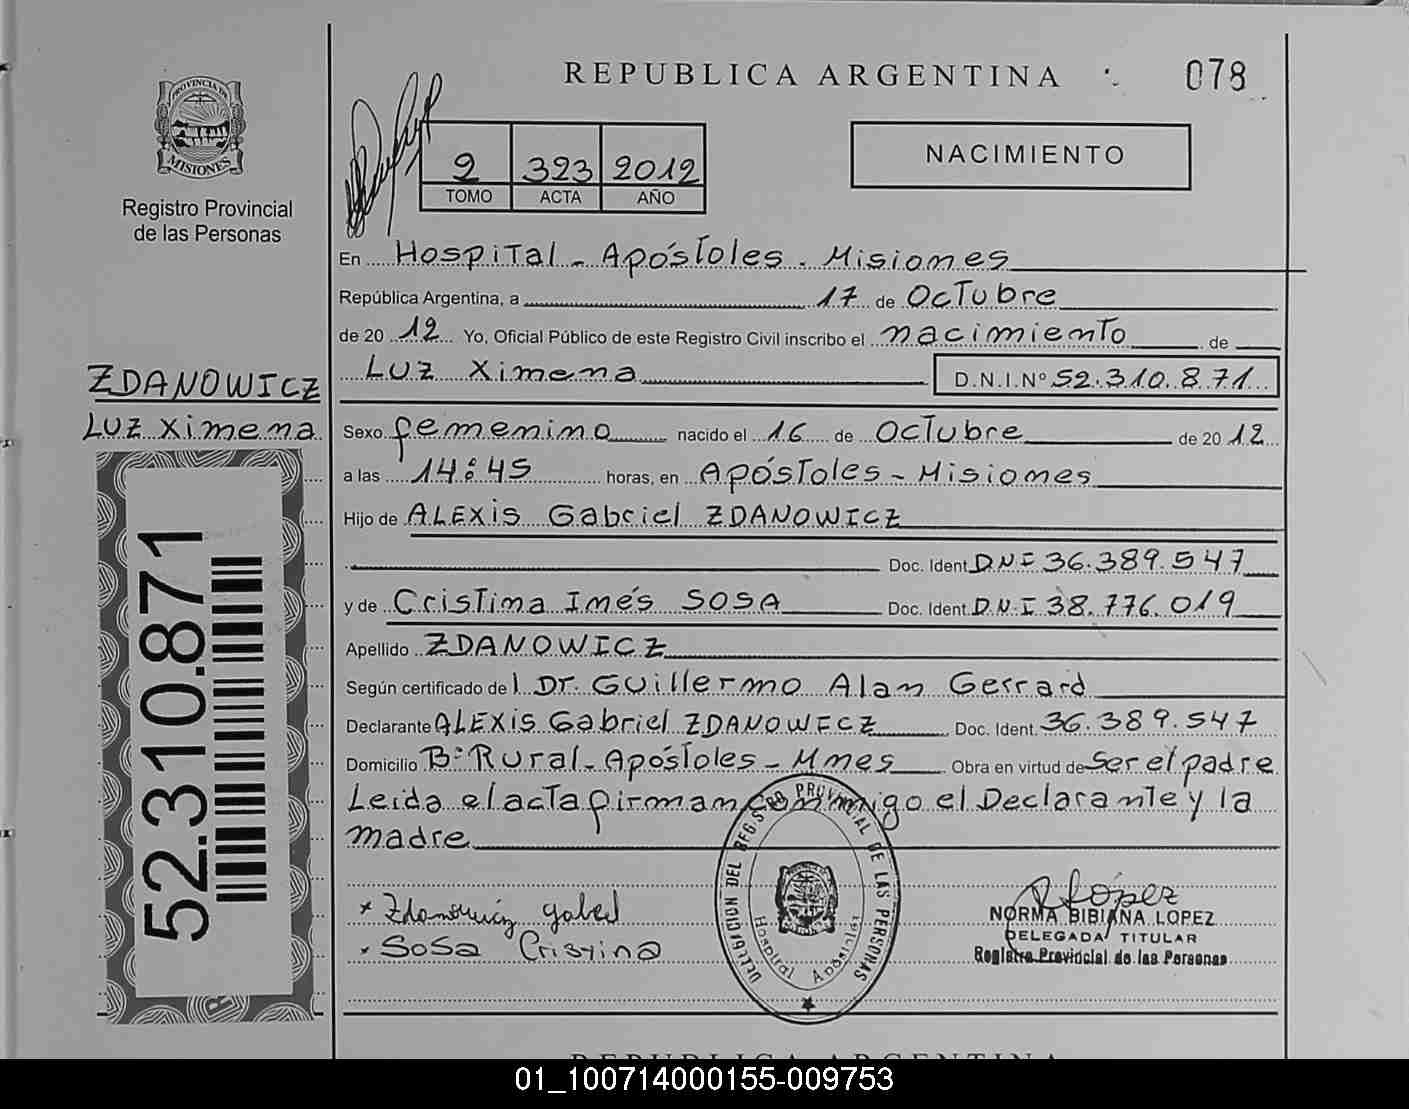 REPUBLICA ARGENTINA
078
PROVINCIA DE
MISIONES
Registro Provincial
de las Personas
2 323 2012
TOMO ACTA AÑO
NACIMIENTO
En Hospital - Apóstoles - Misiones
República Argentina, a 17 de Octubre
de 20 12 Yo, Oficial Público de este Registro Civil inscribo el nacimiento de
Luz Ximena D.N.I.Nº 52.310.871
ZDANOWICZ
Luz Ximena
Sexo femenino nacido el 16 de Octubre de 20 12
a las 14:45 horas, en Apóstoles - Misiones
Hijo de ALEXIS Gabriel ZDANOWICZ
Doc. Ident. DNI 36.389.547
y de Cristina Inés SOSA Doc. Ident. D.N.I 38.776.019
Apellido ZDANOWICZ
Según certificado del Dr. Guillermo Alan Gerrard
Declarante ALEXIS Gabriel ZDANOWICZ Doc. Ident. 36.389.547
Domicilio Bº Rural - Apóstoles - Mnes Obra en virtud de Ser el padre
Leida el acta firman conmigo el Declarante y la
madre
52.310.871
x Zdanowicz gabriel
x Sosa Cristina
DELEGACION DEL REGISTRO PROVINCIAL DE LAS PERSONAS
Hospital Apóstoles
R López
NORMA BIBIANA LOPEZ
DELEGADA TITULAR
Registro Provincial de las Personas
REPUBLICA ARGENTINA
01_100714000155-009753